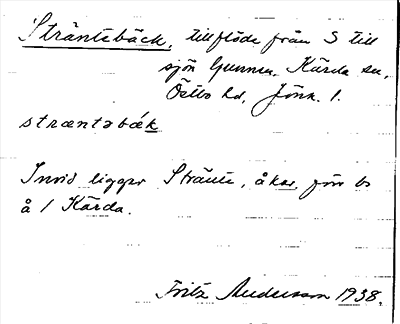 Sträntebäck, tillflöde från S till
sjön Gunnen. Kärda sn,
Östbo hd, Jönk. l.
stræntəbǽk
Invid ligger Stränte, åkar för bs
å / Kärda.
Fritz Andersson 1938.